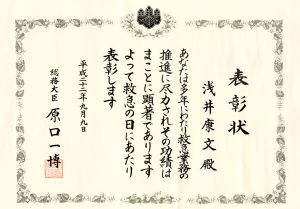 表彰状
浅井康文殿
あなたは多年にわたり救急業務の
推進に尽力されその功績は
まことに顕著であります
よって救急の日にあたり
表彰します
平成二十二年九月九日
総務大臣 原口一博